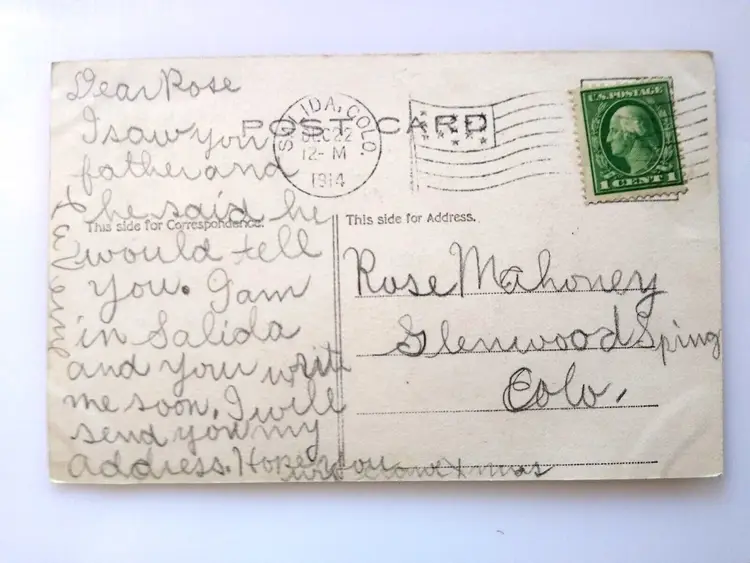 Dear Rose
I saw your
father and
he said he
would tell
you. I am
in Salida
and you write
me soon. I will
send you my
address. Hope you
Xmas
POST CARD
SALIDA, COLO.
DEC 22
12-M
1914
U.S. POSTAGE
1 CENT 1
This side for Correspondence.
This side for Address.
Rose Mahoney
Glenwood Spring
Colo.